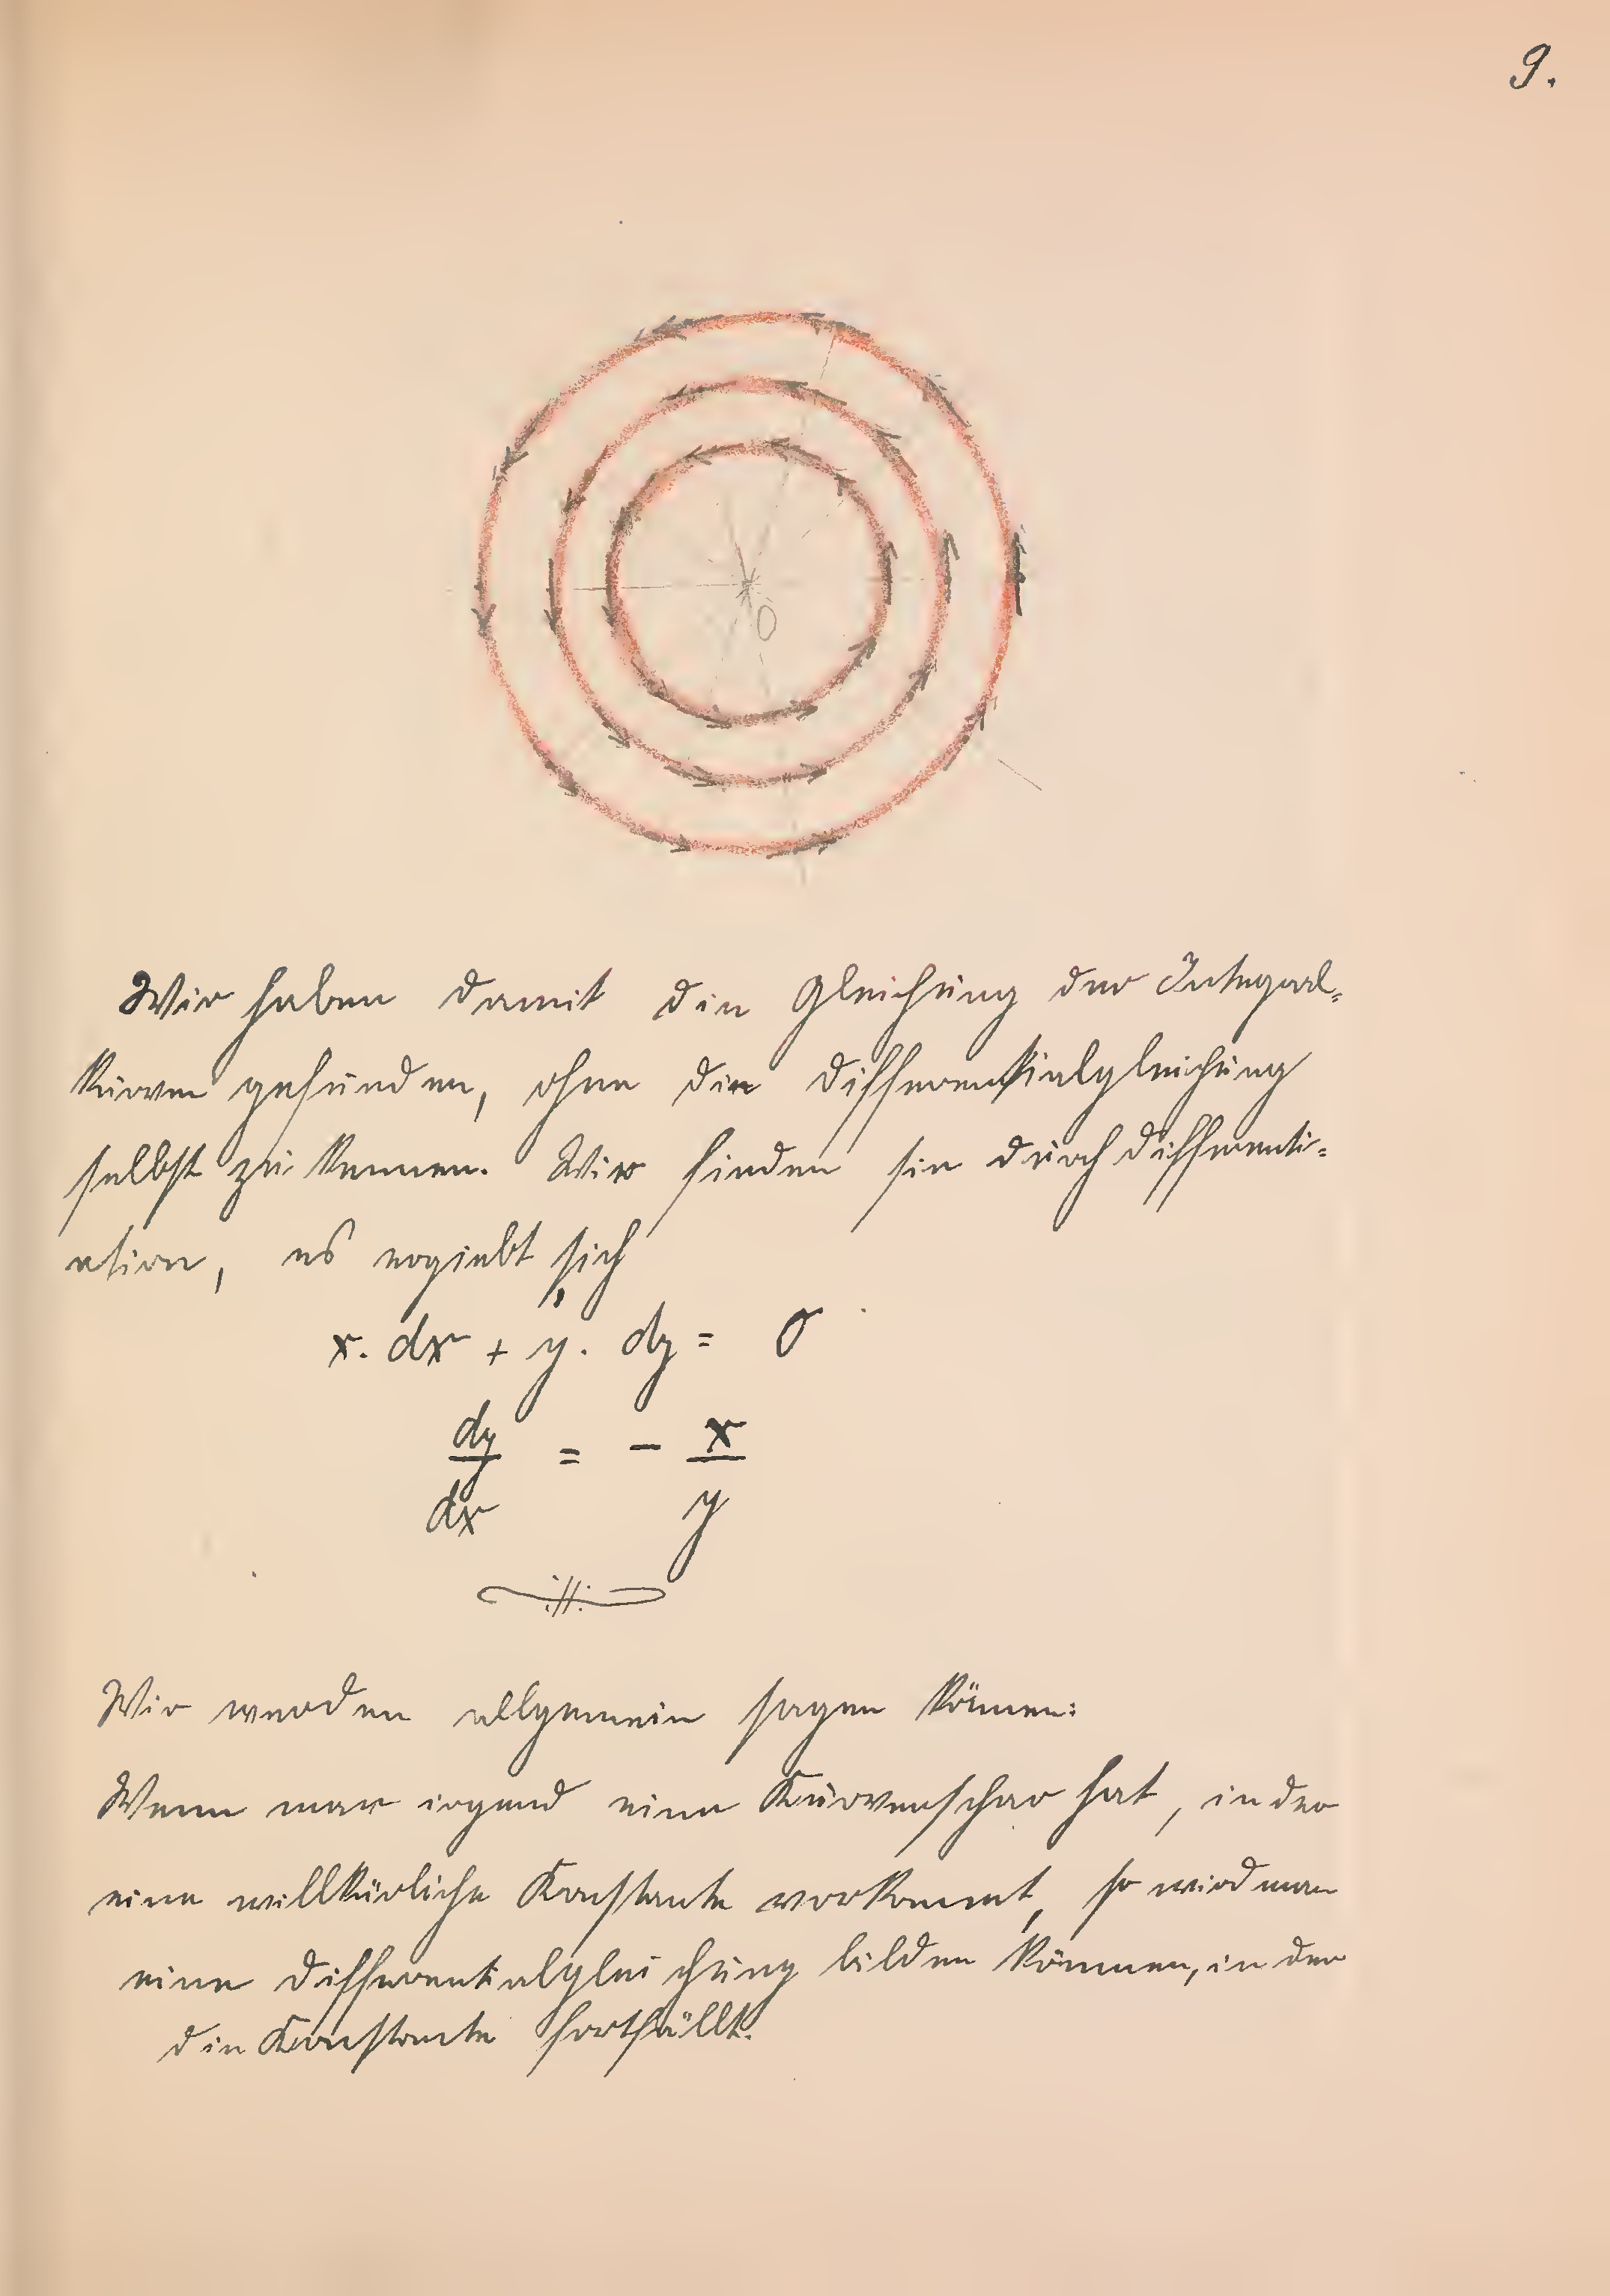 9.
O
Wir haben damit die Gleichung der Integral-
kurven gefunden, ohne die Differentialgleichung
selbst zu kennen. Wir finden sie durch Differenti-
ation, es ergiebt sich
x. dx + y. dy = 0
dy/dx = - x/y
Wir werden allgemein sagen können:
Wenn man irgend eine Kurvenschar hat, in der
eine willkürliche Konstante vorkommt, so wird man
eine Differentialgleichung bilden können, in der
die Konstante fortfällt.